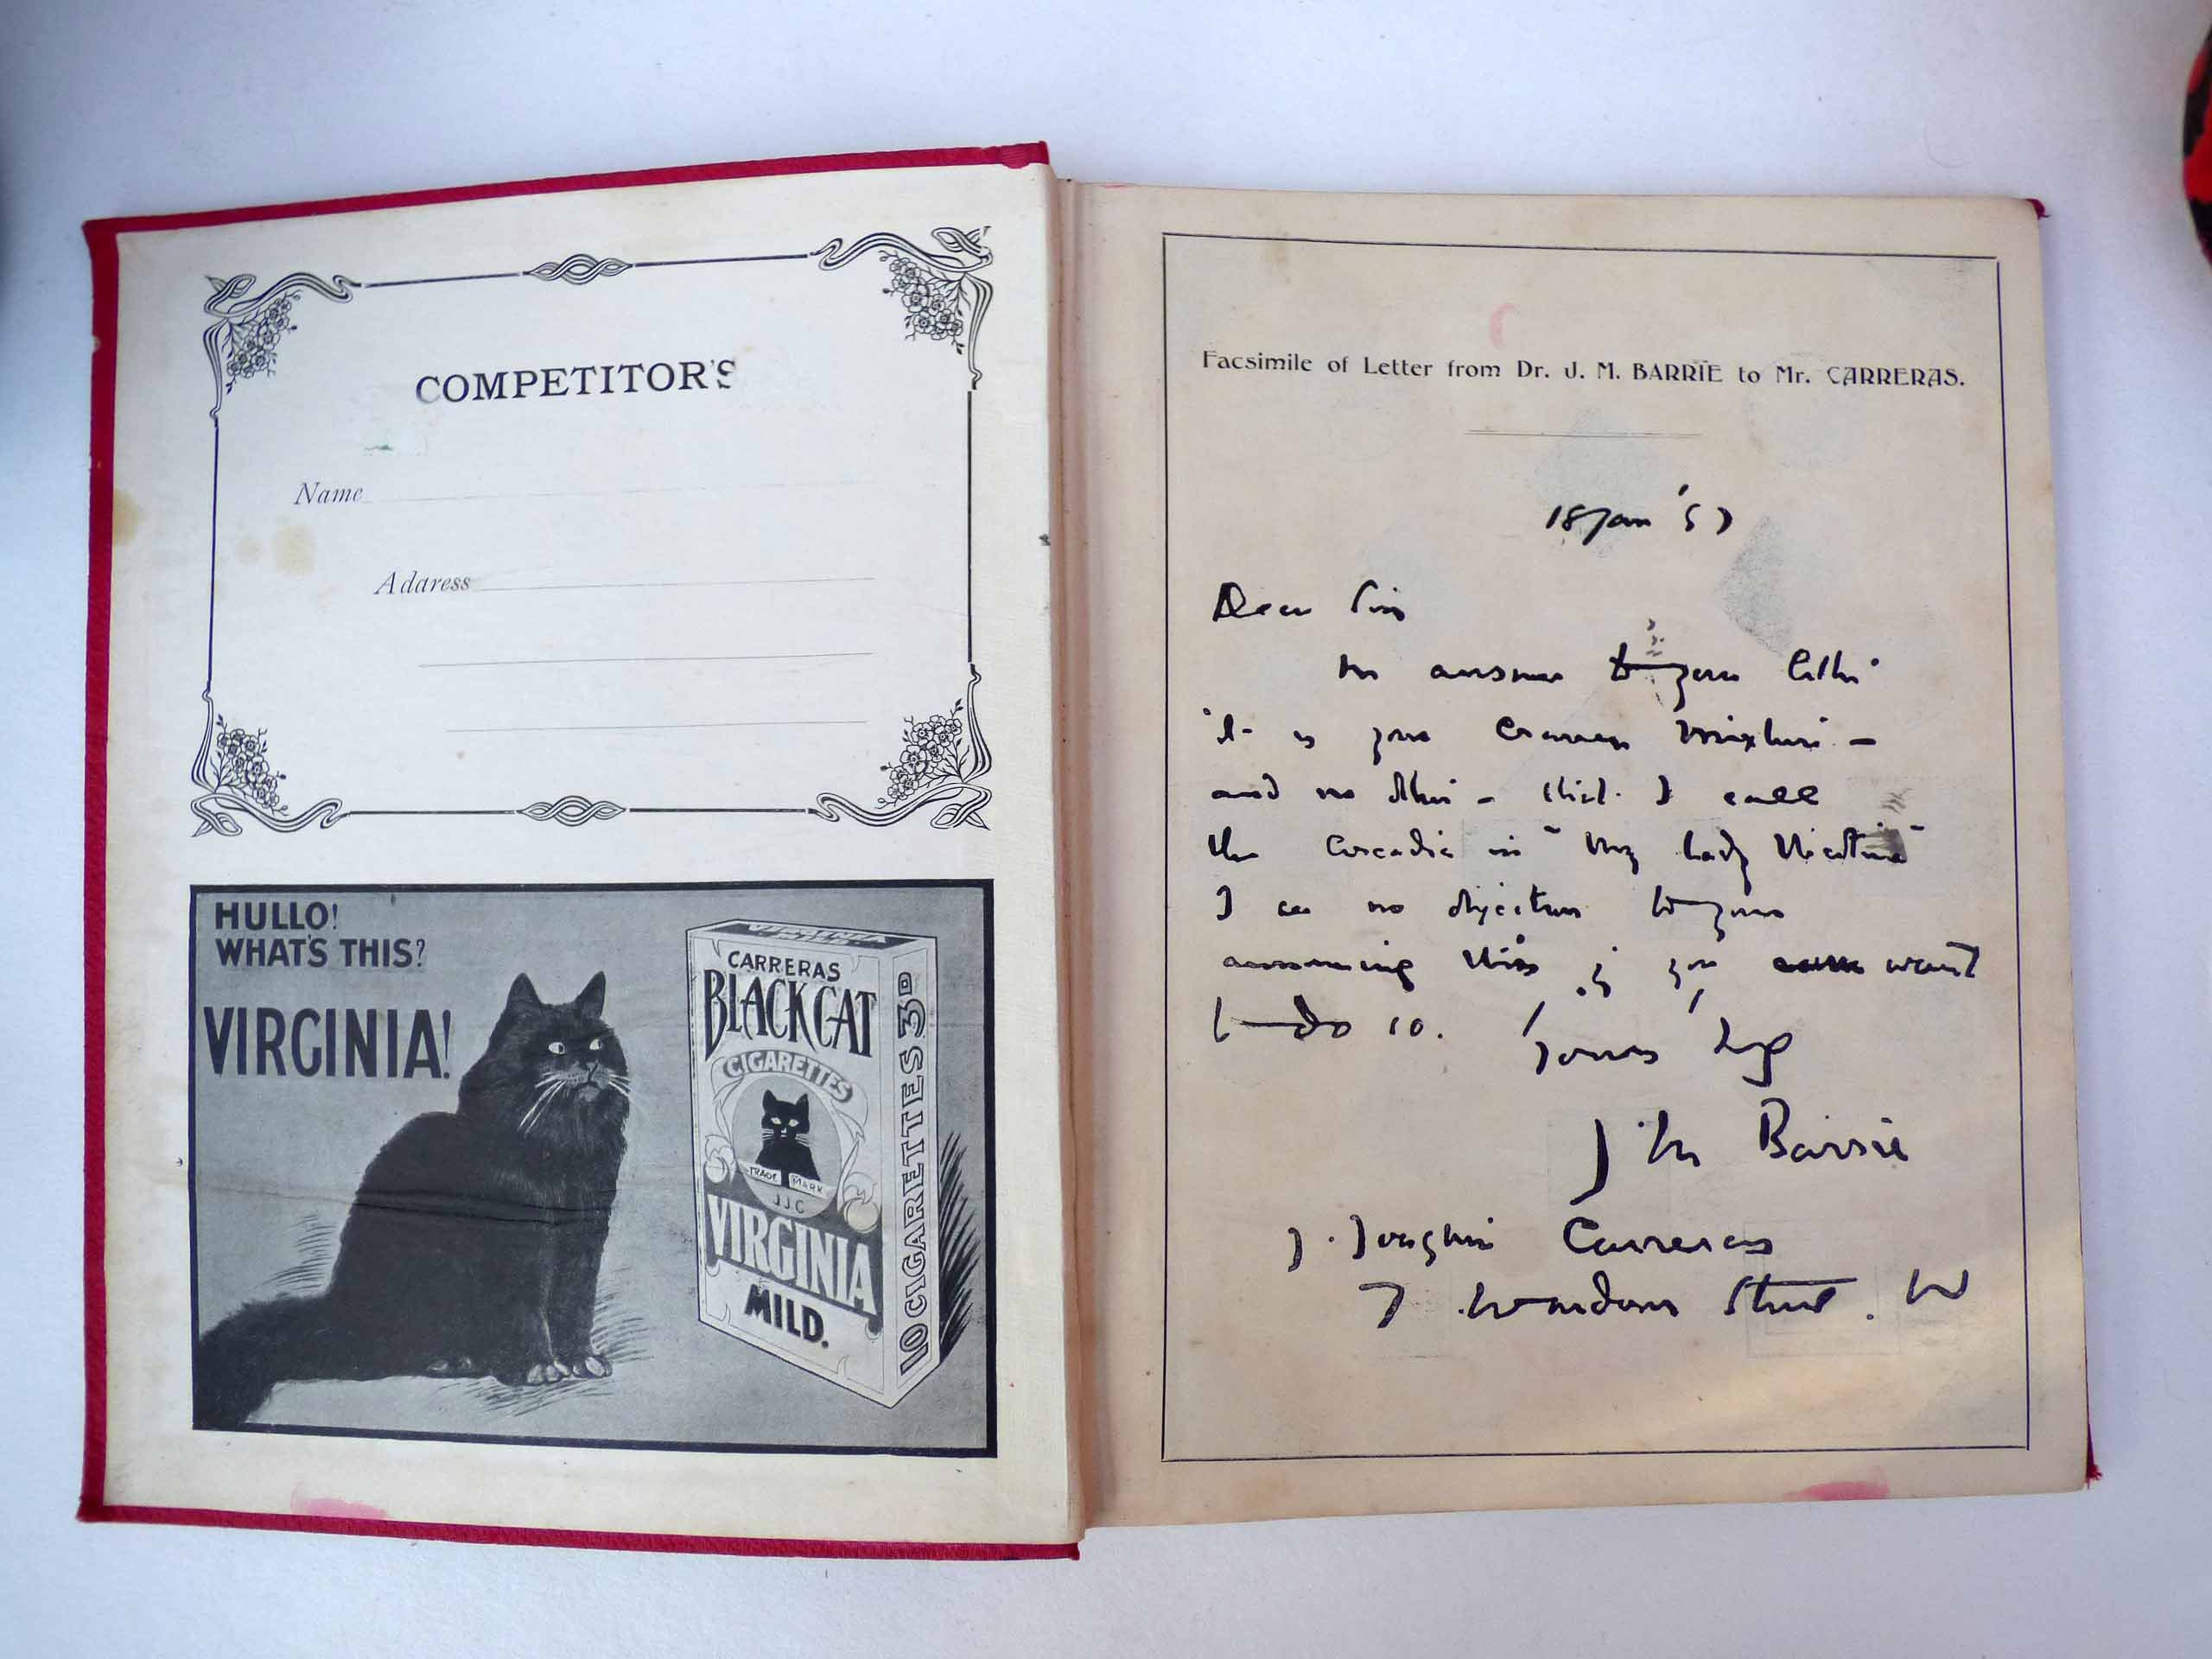 COMPETITOR'S
Name
Address
HULLO!
WHAT'S THIS?
VIRGINIA!
CARRERAS
BLACK CAT
CIGARETTES
TRADE MARK
J.J.C
VIRGINIA
MILD.
10 CIGARETTES 3D
Facsimile of Letter from Dr. J. M. BARRIE to Mr. CARRERAS.
18 Jan '97
Dear Sir
In answer to your letter
it is your Craven Mixture —
and no other - that I call
the Arcadia in "My Lady Nicotine"
I see no objection to your
announcing this if you want
to do so. Yours truly
J M Barrie
J. Joaquin Carreras
7 Wardour Street. W